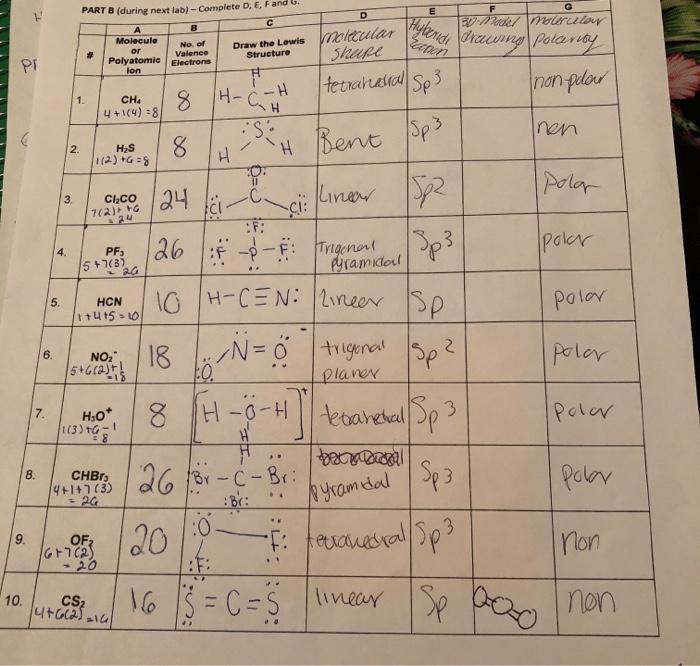 PART B (during next lab) – Complete D, E, F and G.
A B C D E F G
# Molecule or Polyatomic Ion No. of Valence Electrons Draw the Lewis Structure molecular shape 3D-Model drawing molecular polarity
1. CH₄ 8 tetrahedral Sp³ non-polar
4+1(4)=8
H
H-C-H
H
2. H₂S 8 Bent Sp³ non
1(2)+6=8
:S:
H H
3. Cl₂CO 24 Linear Sp2 polar
7(2)+4+6
=24
:O:
C
:Cl Cl:
4. PF₃ 26 Trigonal pyramidal Sp³ polar
5+7(3)
=26
:F:
:F-P-F:
5. HCN 10 H-C≡N: Linear Sp polar
1+4+5=10
6. NO₂⁻ 18 trigonal planer Sp² polar
5+6(2)+1
=18
N=O
:O
7. H₃O⁺ 8 tetrahedral Sp3 polar
1(3)+6-1
=8
[H-O-H]⁺
H
8. CHBr₃ 26 pyramidal Sp3 polar
4+1+7(3)
=26
H
:Br-C-Br:
:Br:
9. OF₂ 20 tetrahedral Sp³ non
6+7(2)
=20
:O F:
:F:
10. CS₂ 16 S=C=S linear Sp non
4+6(2)=16